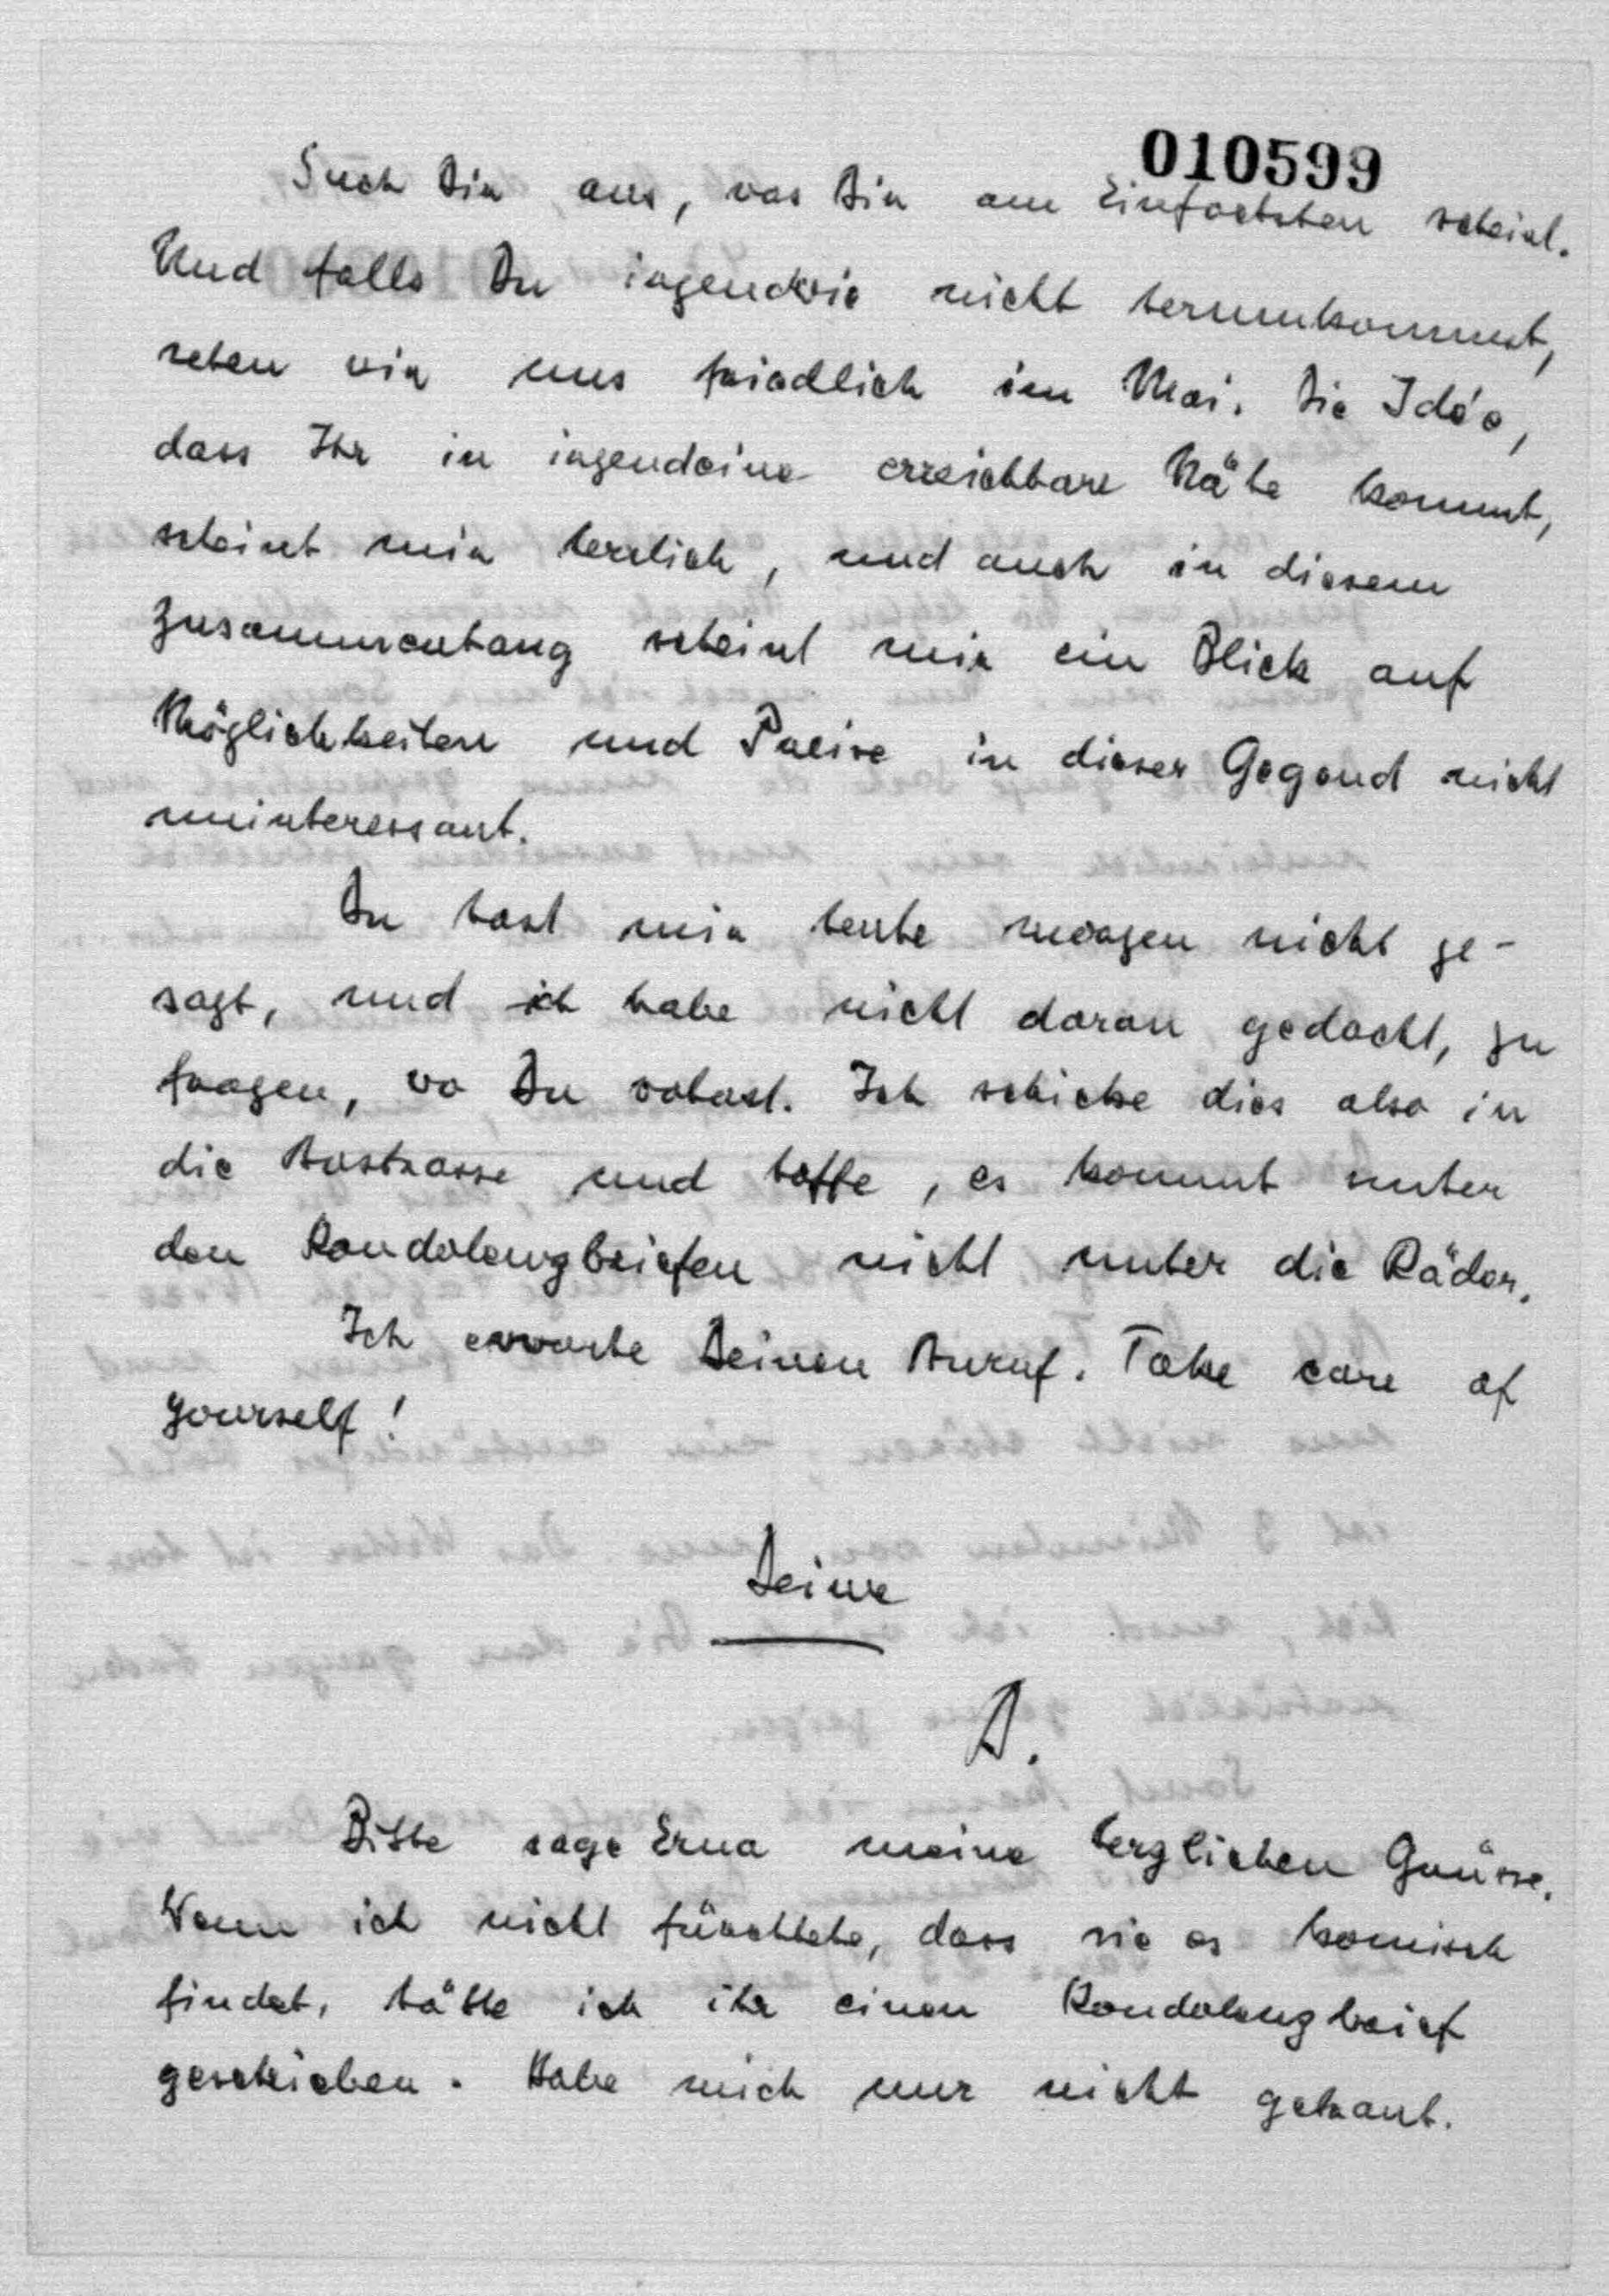 010599
Such Dir aus, was Dir am Einfachsten scheint.
Und falls Du irgendwie nicht herumkommst,
sehen wir uns friedlich im Mai. Die Idée,
dass Ihr in irgendeine erreichbare Nähe kommt,
scheint mir herrlich, und auch in diesem
Zusammenhang scheint mir ein Blick auf
Möglichkeiten und Preise in dieser Gegend nicht
uninteressant.
Du hast mir heute morgen nicht ge-
sagt, und ich habe nicht daran gedacht, zu
fragen, wo Du wohnst. Ich schicke dies also in
die Austrasse und hoffe, es kommt unter
den Kondolenzbriefen nicht unter die Räder.
Ich erwarte Deinen Anruf. Take care of
yourself!
Deine
A.
Bitte sage Erna meine herzlichen Grüsse.
Wenn ich nicht fürchtete, dass sie es komisch
findet, hätte ich ihr einen Kondolenzbrief
geschrieben. Habe mich nur nicht getraut.